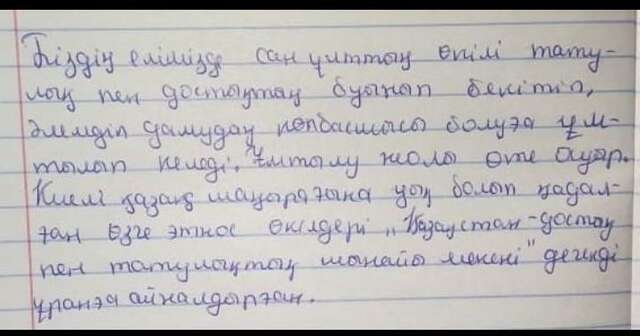 Біздің елімізде сан ұлттың өкілі тату-
лық пен достықтың буынын бекітіп,
әлемдік дамудың көшбасшысы болуға ұм-
тылып келеді. Ұмтылу жолы өте ауыр.
Киелі қазақ шаңырағына уық болып қадал-
ған өзге этнос өкілдері „Қазақстан-достық
пен татулықтың шынайы мекені" дегенді
ұранға айналдырған.